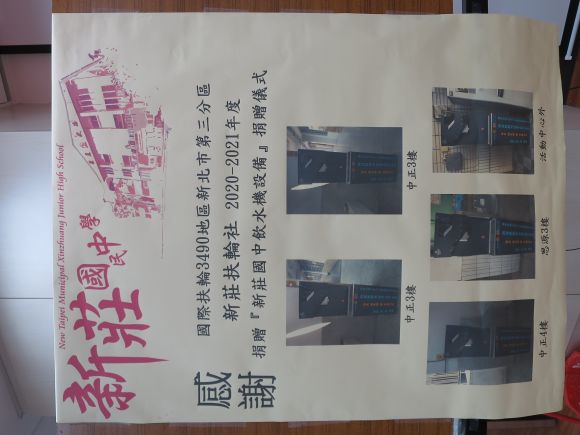 New Taipei Municipal Xinzhuang Junior High School
新莊國民中學
感謝
國際扶輪3490地區新北市第三分區
新莊扶輪社 2020-2021年度
捐贈『新莊國中飲水機設備』捐贈儀式
中正3樓
中正3樓
中正4樓
思源3樓
活動中心外